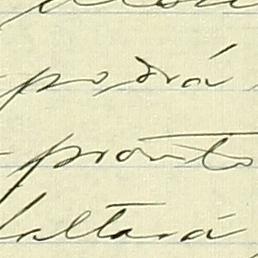 podrá
pronto
faltará